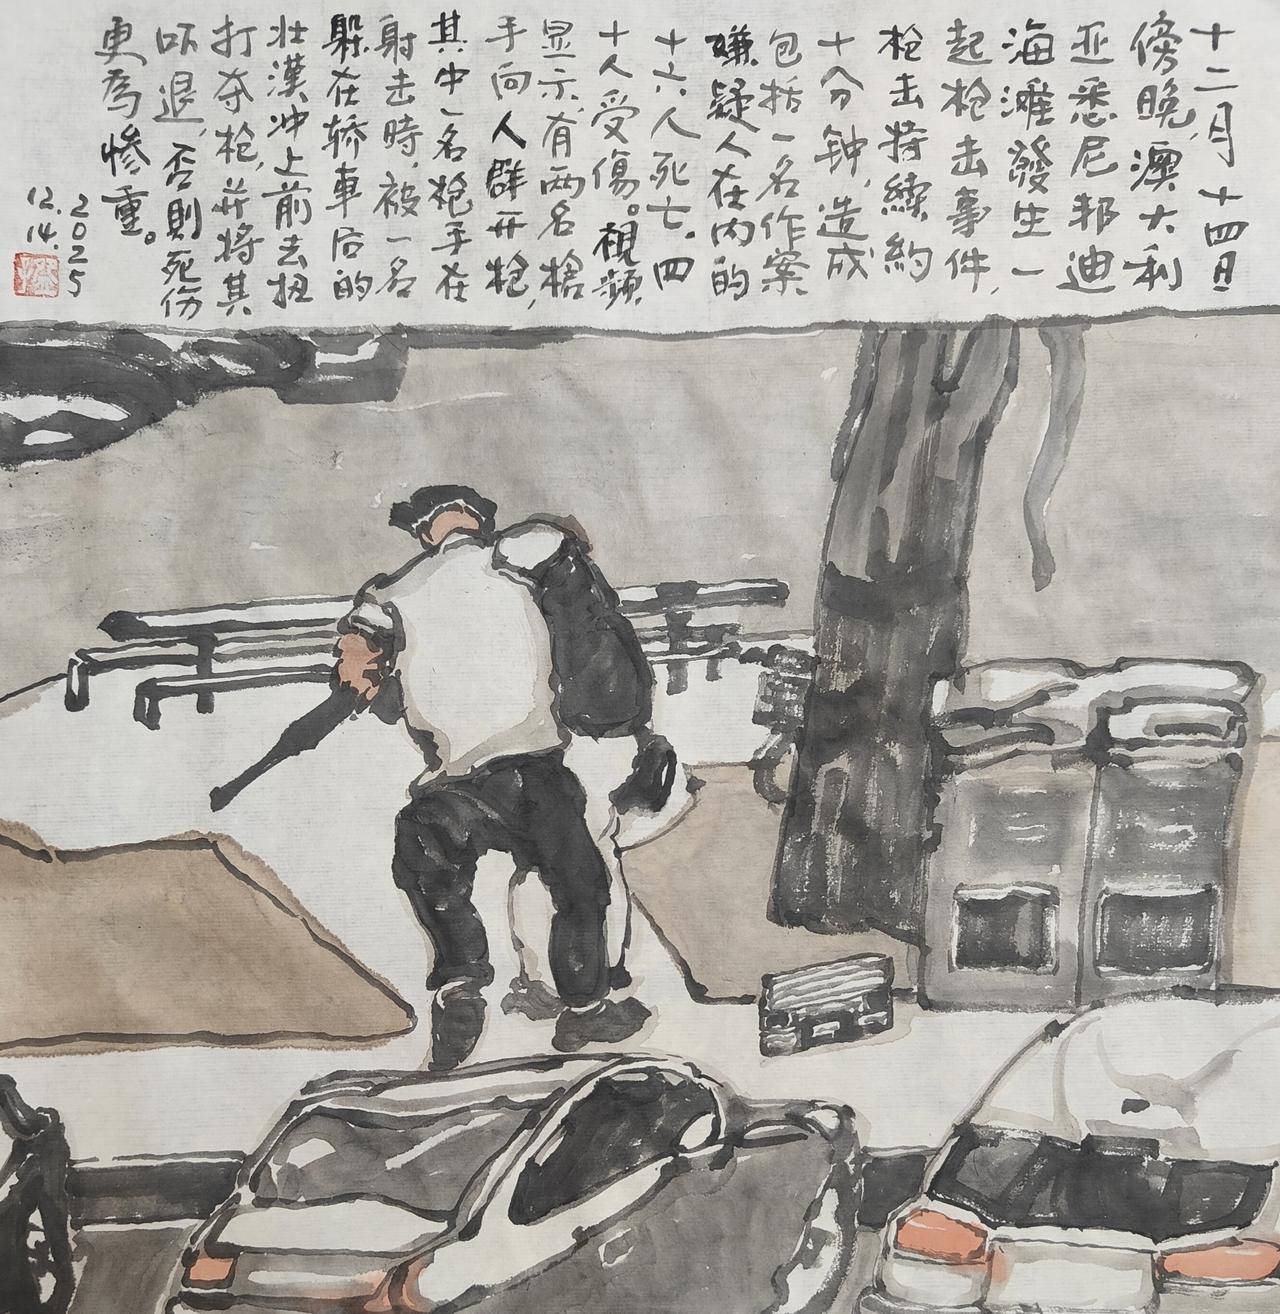 十二月十四日
傍晚,澳大利
亚悉尼邦迪
海滩發生一
起枪击事件,
枪击持續約
十分钟,造成
包括一名作案
嫌疑人在内的
十六人死亡.四
十人受傷。視频
显示,有两名槍
手向人群开枪,
其中一名枪手在
射击時,被一名
躲在轿車后的
壮漢冲上前去扭
打夺枪,并将其
吓退,否則死伤
更為惨重。
2025
12.14.